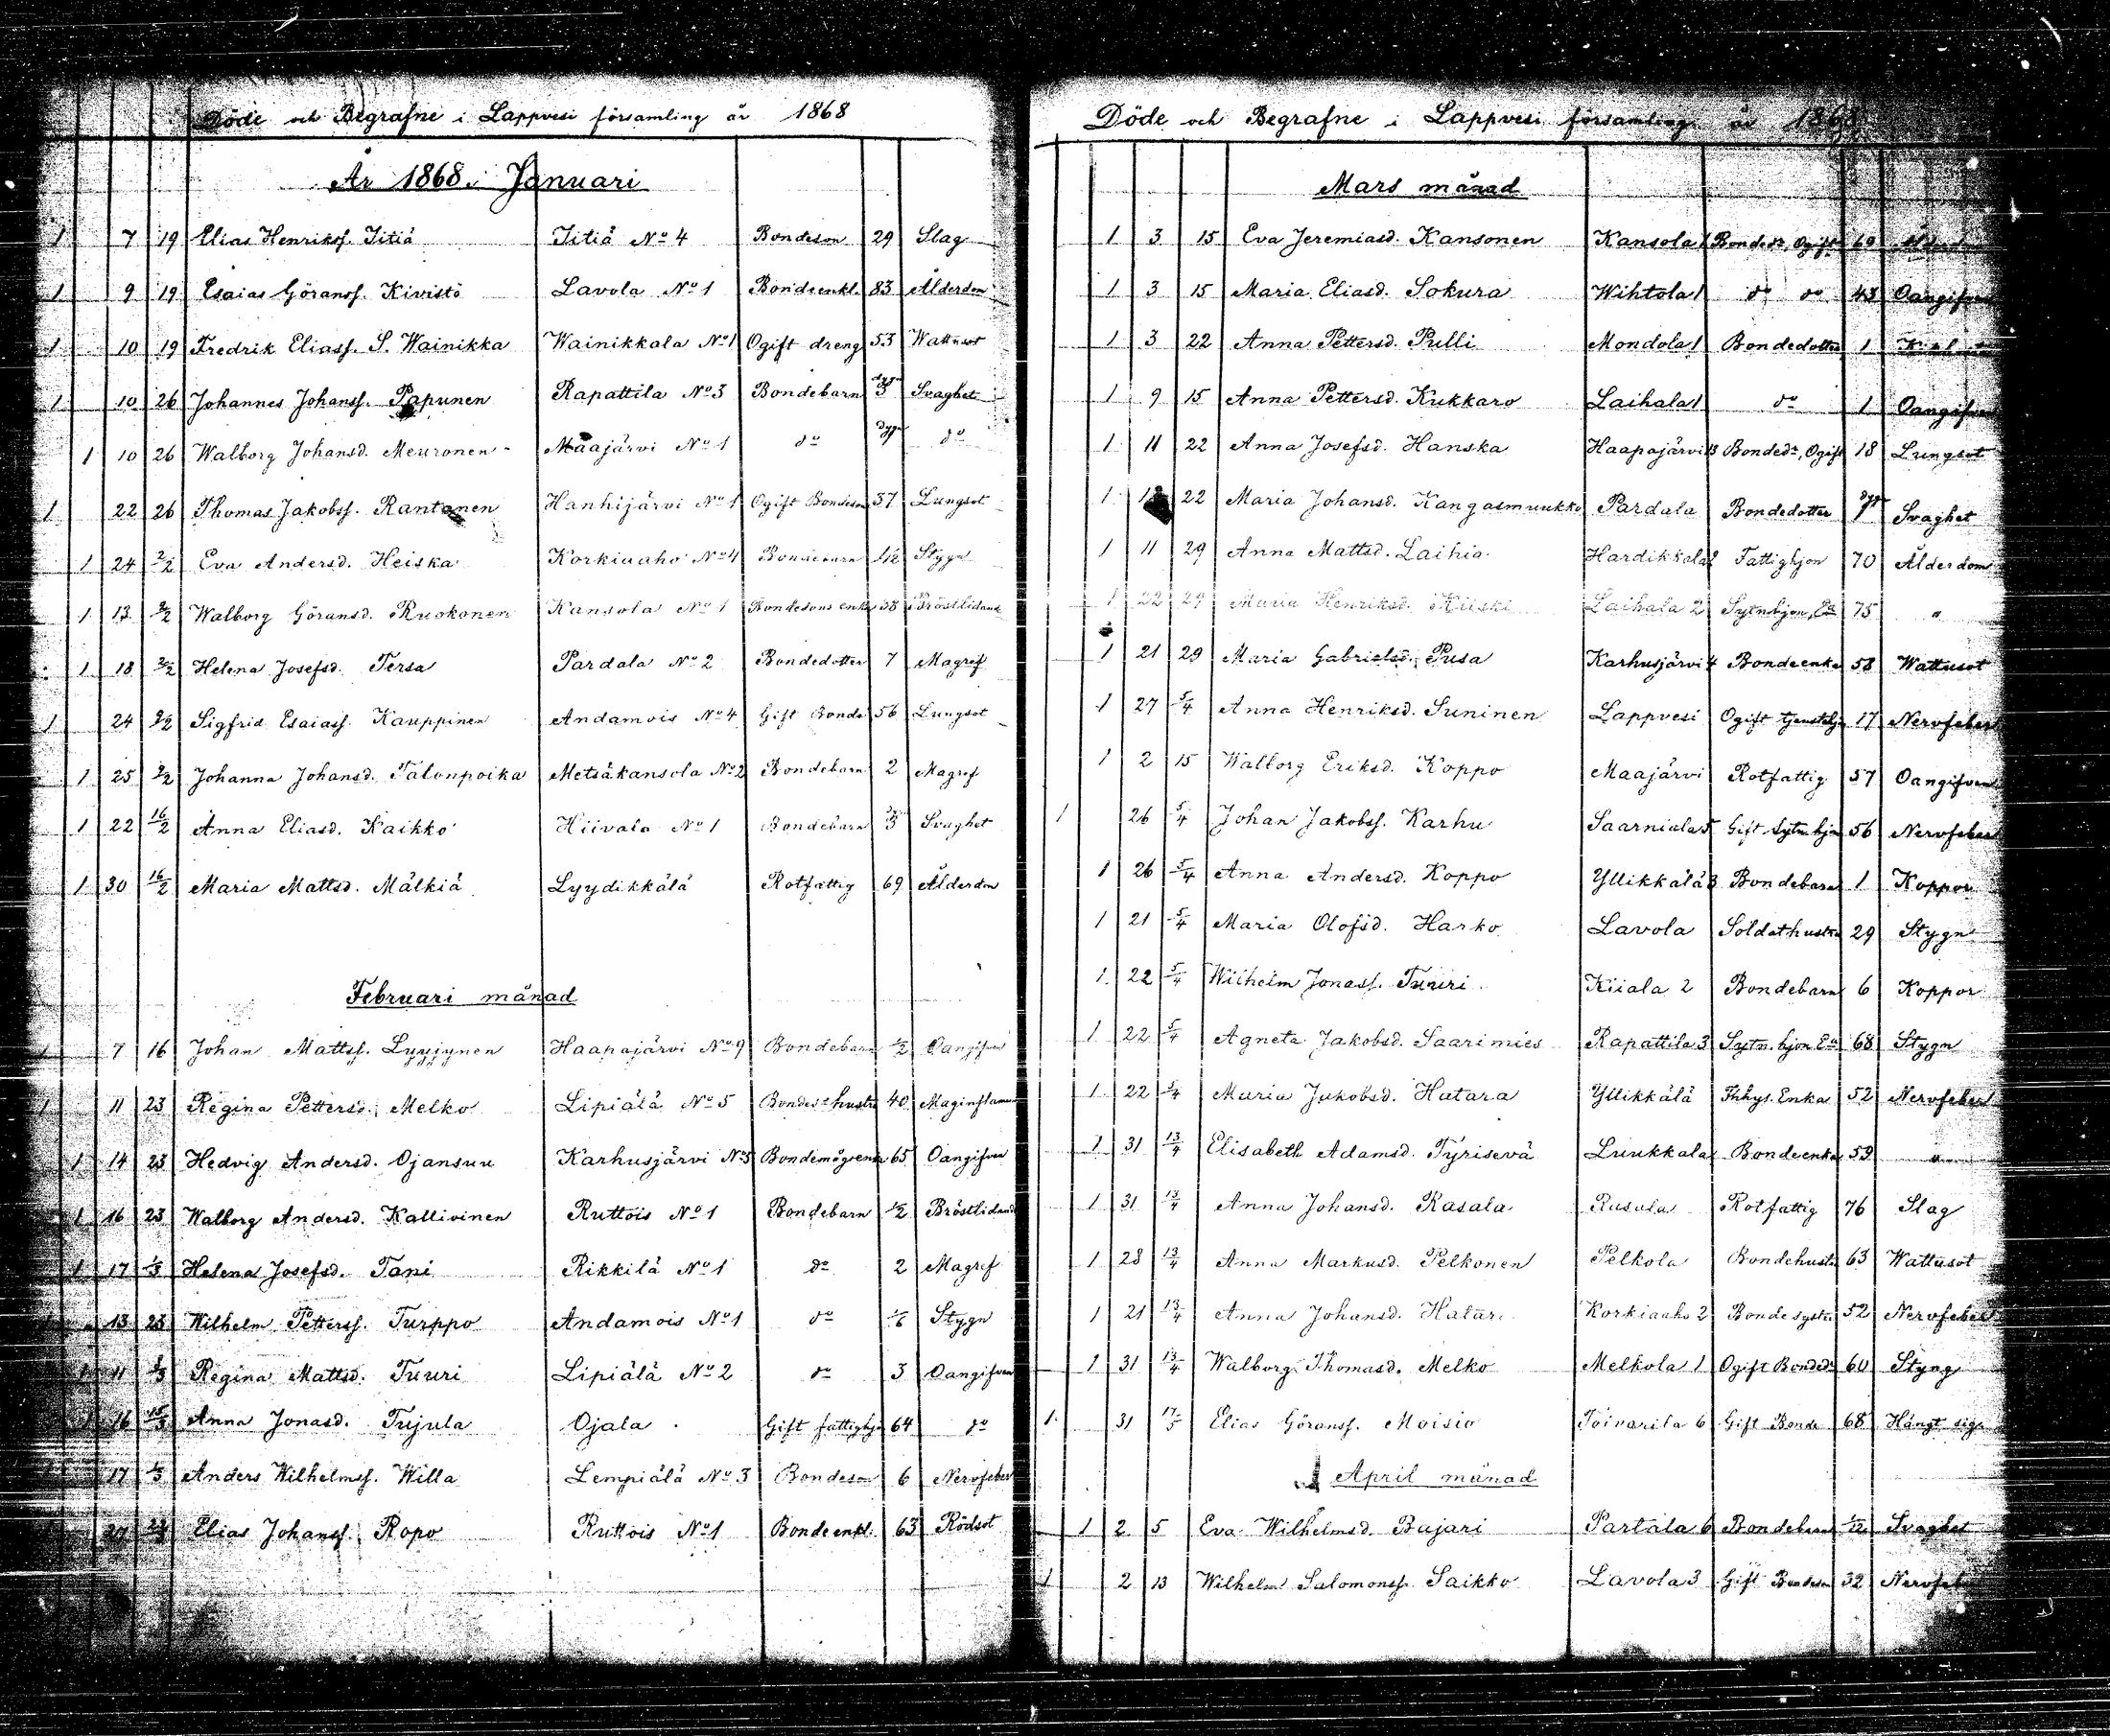 Döde och Begrafne i Lappvesi församling år 1868
År 1868. Januari
1 7 19 Elias Henrikss. Iitiä Iitiä No 4 Bondeson 29 Slag
1 9 19 Esaias Göranss. Kivistö Lavola No 1 Bondeenkl. 83 Ålderdom
1 10 19 Fredrik Eliass. S. Wainikka Wainikkala No 1 Ogift dreng 53 Wattusot
1 10 26 Johannes Johanss. Papunen Rapattila No 3 Bondebarn dygn 3 Svaghet
1 10 26 Walborg Johansd. Meuronen Maajärvi No 1 do dygn do
1 22 26 Thomas Jakobss. Rantanen Hanhijärvi No 1 Ogift Bondeson 37 Lungsot
1 24 2/2 Eva Andersd. Heiska Korkiaaho No 4 Bondebarn Stygn
1 13 2/2 Walborg Göransd. Ruokonen Kansola No 1 Bondesons enka 38 Bröstlidande
1 18 2/2 Helena Josefsd. Tersa Pardala No 2 Bondedotter 7 Magref
1 24 9/2 Sigfrid Esaiass. Kauppinen Andamois No 4 Gift Bonde 56 Lungsot
1 25 9/2 Johanna Johansd. Talonpoika Metsäkansola No 2 Bondebarn 2 Magref
1 22 16/2 Anna Eliasd. Kaikko Hiivala No 1 Bondebarn 3 Svaghet
1 30 16/2 Maria Mattsd. Mälkiä Lyydikkälä Rotfattig 69 Ålderdom
Februari månad
1 7 16 Johan Mattss. Lyyjynen Haapajärvi No 9 Bondebarn 1/2 Oangifven
1 11 23 Regina Pettersd. Melko Lipiälä No 5 Bondes. hustru 40 Maginflamm
1 14 23 Hedvig Andersd. Ojansuu Karhusjärvi No 5 Bondemågenka 65 Oangifven
1 16 23 Walborg Andersd. Kallivinen Ruttois No 1 Bondebarn 1/2 Bröstlidande
1 17 1/3 Helena Josefsd. Tani Rikkilä No 1 do 2 Magref
13 23 Wilhelm Petterss. Turppo Andamois No 1 do 1/6 Stygn
1 11 1/3 Regina Mattsd. Tuuri Lipiälä No 2 do 3 Oangifven
1 16 15/3 Anna Jonasd. Tujula Ojala Gift fattighj. 64 do
17 1/3 Anders Wilhelmss. Willa Lempiälä No 3 Bondeson 6 Nervfeber
27 Elias Johanss. Ropo Ruttois No 1 Bondeenkl. 63 Rödsot
Döde och Begrafne i Lappvesi församling år 1868
Mars månad
1 3 15 Eva Jeremiasd. Kansonen Kansola 1 Bondedr, Ogift 69 Ålderdom
1 3 15 Maria Eliasd. Sokura Wihtola 1 do do 43 Oangifven
1 3 22 Anna Pettersd. Pulli Mondola 1 Bondedotter 1
1 9 15 Anna Pettersd. Kukkaro Laihala 1 do 1 Oangifven
1 11 22 Anna Josefsd. Hanska Haapajärvi 13 Bondedr, Ogift 18 Lungsot
1 22 Maria Johansd. Kangasmuukko Pardala Bondedotter dygn 1 Svaghet
1 11 29 Anna Mattsd. Laihia Hardikkala 2 Fattighjon 70 Ålderdom
1 22 29 Maria Henriksd. Kiiski Laihala 2 Sytnhjon, Ea 75 "
1 21 29 Maria Gabrielsd. Pusa Karhusjärvi 4 Bondeenka 58 Wattusot
1 27 5/4 Anna Henriksd. Suninen Lappvesi Ogift tjenstehj. 17 Nervfeber
1 2 15 Walborg Eriksd. Koppo Maajärvi Rotfattig 57 Oangifven
1 26 5/4 Johan Jakobss. Karhu Saarniala 5 Gift Sytnhjon 56 Nervfeber
1 26 5/4 Anna Andersd. Koppo Yllikkälä 3 Bondebarn 1 Koppor
1 21 5/4 Maria Olofsd. Harko Lavola Soldathustru 29 Stygn
1 22 5/4 Wilhelm Jonass. Tuuri Kiiala 2 Bondebarn 6 Koppor
1 22 5/4 Agneta Jakobsd. Saarimies Rapattila 3 Sytn.hjon Ea 68 Stygn
1 22 5/4 Maria Jakobsd. Hatara Yllikkälä Inhys. Enka 52 Nervfeber
1 31 13/4 Elisabeth Adamsd. Tyrisevä Luukkala Bondeenka 59 "
1 31 13/4 Anna Johansd. Rasala Rasala Rotfattig 76 Slag
1 28 13/4 Anna Markusd. Pelkonen Pelkola Bondehustru 63 Wattusot
1 21 13/4 Anna Johansd. Hatara Korkiaaho 2 Bondesyster 52 Nervfeber
1 31 13/4 Walborg Thomasd. Melko Melkola 1 Ogift Bondedr 60 Styng
1 31 17/5 Elias Göranss. Moisio Toivarila 6 Gift Bonde 68 Hängt sig
April månad
1 2 5 Eva Wilhelmsd. Bajari Partala 6 Bondebarn 1/12 Svaghet
1 2 13 Wilhelm Salomonss. Saikko Lavola 3 Gift Bondeson 32 Nervfeber